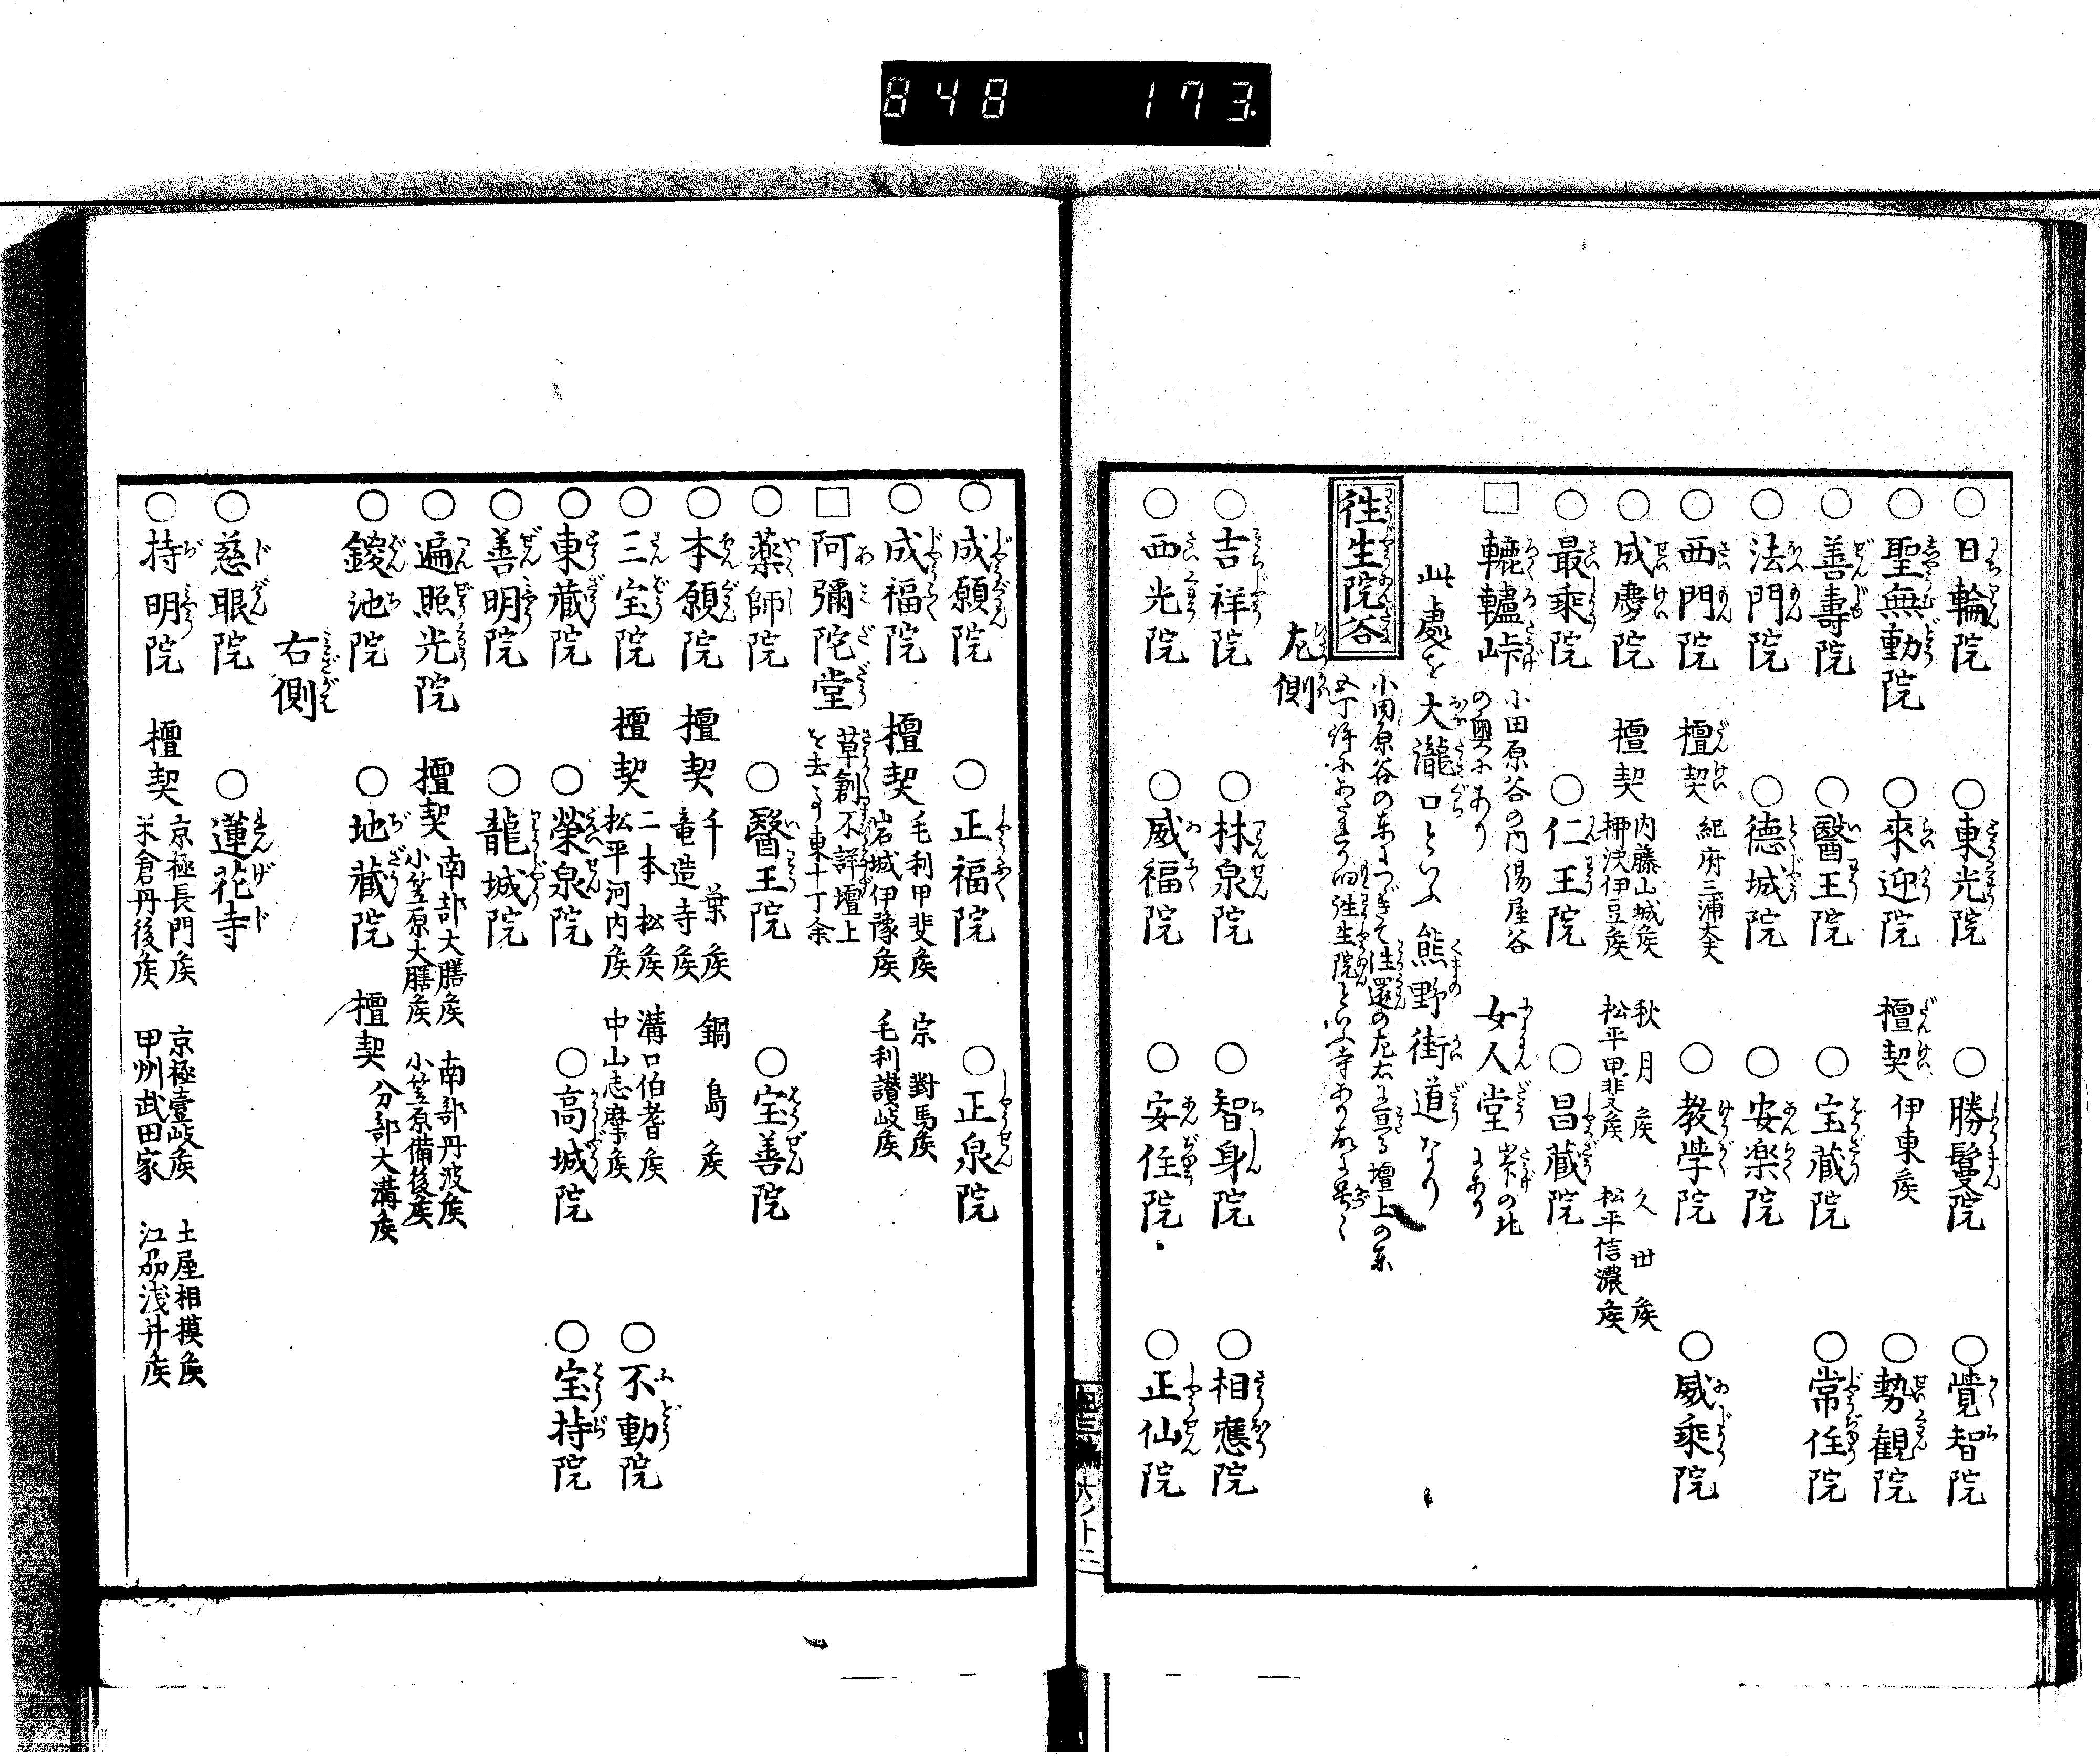 848 173
○日輪院 ○東光院 ○勝鬘院 ○覚智院
○聖無動院 ○來迎院 檀契 伊東矦 ○勢観院
○善壽院 ○醫王院 ○宝蔵院 ○常住院
○法門院 ○德城院 ○安楽院
○西門院 檀契 紀府三浦大夫 ○教学院 ○威乘院
○成慶院 檀契 内藤山城矦 秋月矦 久世矦
栁沢伊豆矦 松平甲斐矦 松平信濃矦
○最乘院 ○仁王院 ○昌蔵院
□轆轤峠 小田原谷の内湯屋谷
の奥にあり 女人堂 峠の北
にあり
此處を大瀧口といふ熊野街道なり
往生院谷 小田原谷の東につぎて往還の左右に亘る壇上の東
五丁許にあり 往生院といふ寺あり
左側
○吉祥院 ○林泉院 ○智身院 ○相應院
○西光院 ○威福院 ○安住院 ○正仙院
○成願院 ○正福院 ○正泉院
○成福院 檀契 毛利甲斐矦 宗對馬矦
岩城伊豫矦 毛利讃岐矦
□阿彌陀堂 草創不詳壇上
を去る東十丁余
○薬師院 ○醫王院 ○宝善院
○本願院 檀契 千葉矦 鍋島矦
竜造寺矦
○三宝院 檀契 二本松矦 溝口伯耆矦 ○不動院
松平河内矦 中山志摩矦
○東蔵院 ○榮泉院 ○高城院 ○宝持院
○善明院 ○龍城院
○遍照光院 檀契 南部大膳矦 南部丹波矦
小笠原大膳矦 小笠原備後矦
○鑁池院 ○地蔵院 檀契 分部大溝矦
右側
○慈眼院 ○蓮花寺
○持明院 檀契 京極長門矦 京極壹岐矦 土屋相摸矦
米倉丹後矦 甲州武田家 江刕浅井矦